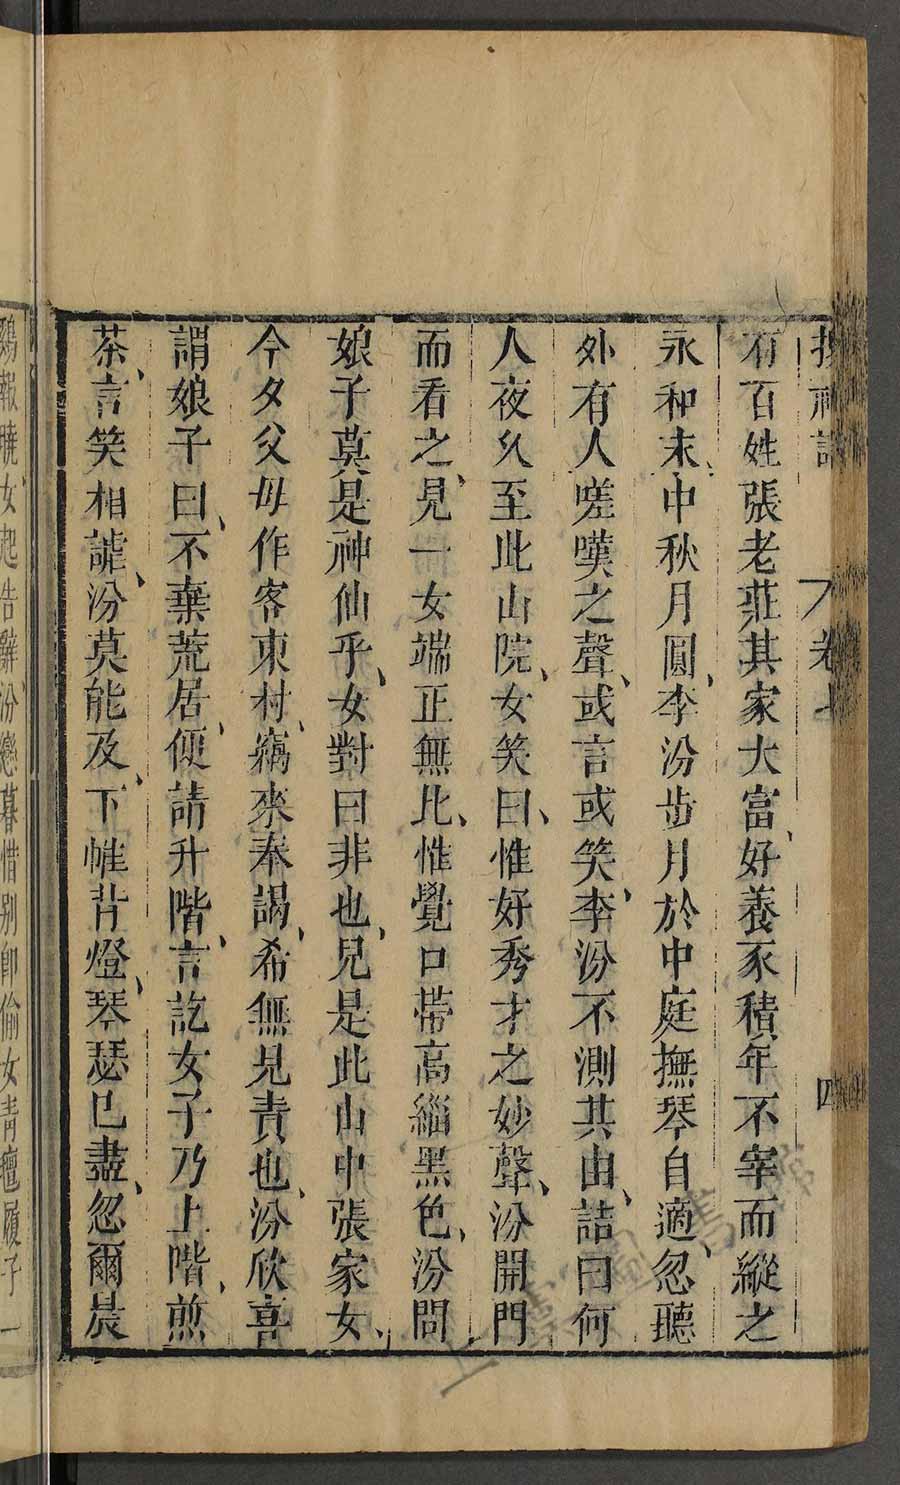 搜神記 卷七 四
有百姓張老莊其家大富、好養豕積年不宰而縱之
永和末、中秋月圓、李汾步月於中庭撫琴自適、忽聽
外有人嗟嘆之聲、或言或笑、李汾不測其由、詰曰何
人夜久至此山院、女笑曰、惟好秀才之妙聲、汾開門
而看之、見一女端正無比、惟覺口帶高緇黑色、汾問
娘子莫是神仙乎、女對曰非也、兒是此山中張家女、
今夕父母作客東村、竊來奉謁、希無見責也、汾欣喜
謂娘子曰、不棄荒居、便請升階、言訖女子乃上階、煎
茶、言笑相謔、汾莫能及、下帷背燈、琴瑟已盡、忽爾晨
鷄報曉、女起告辭、汾戀暮惜別即偷女青氊履子一